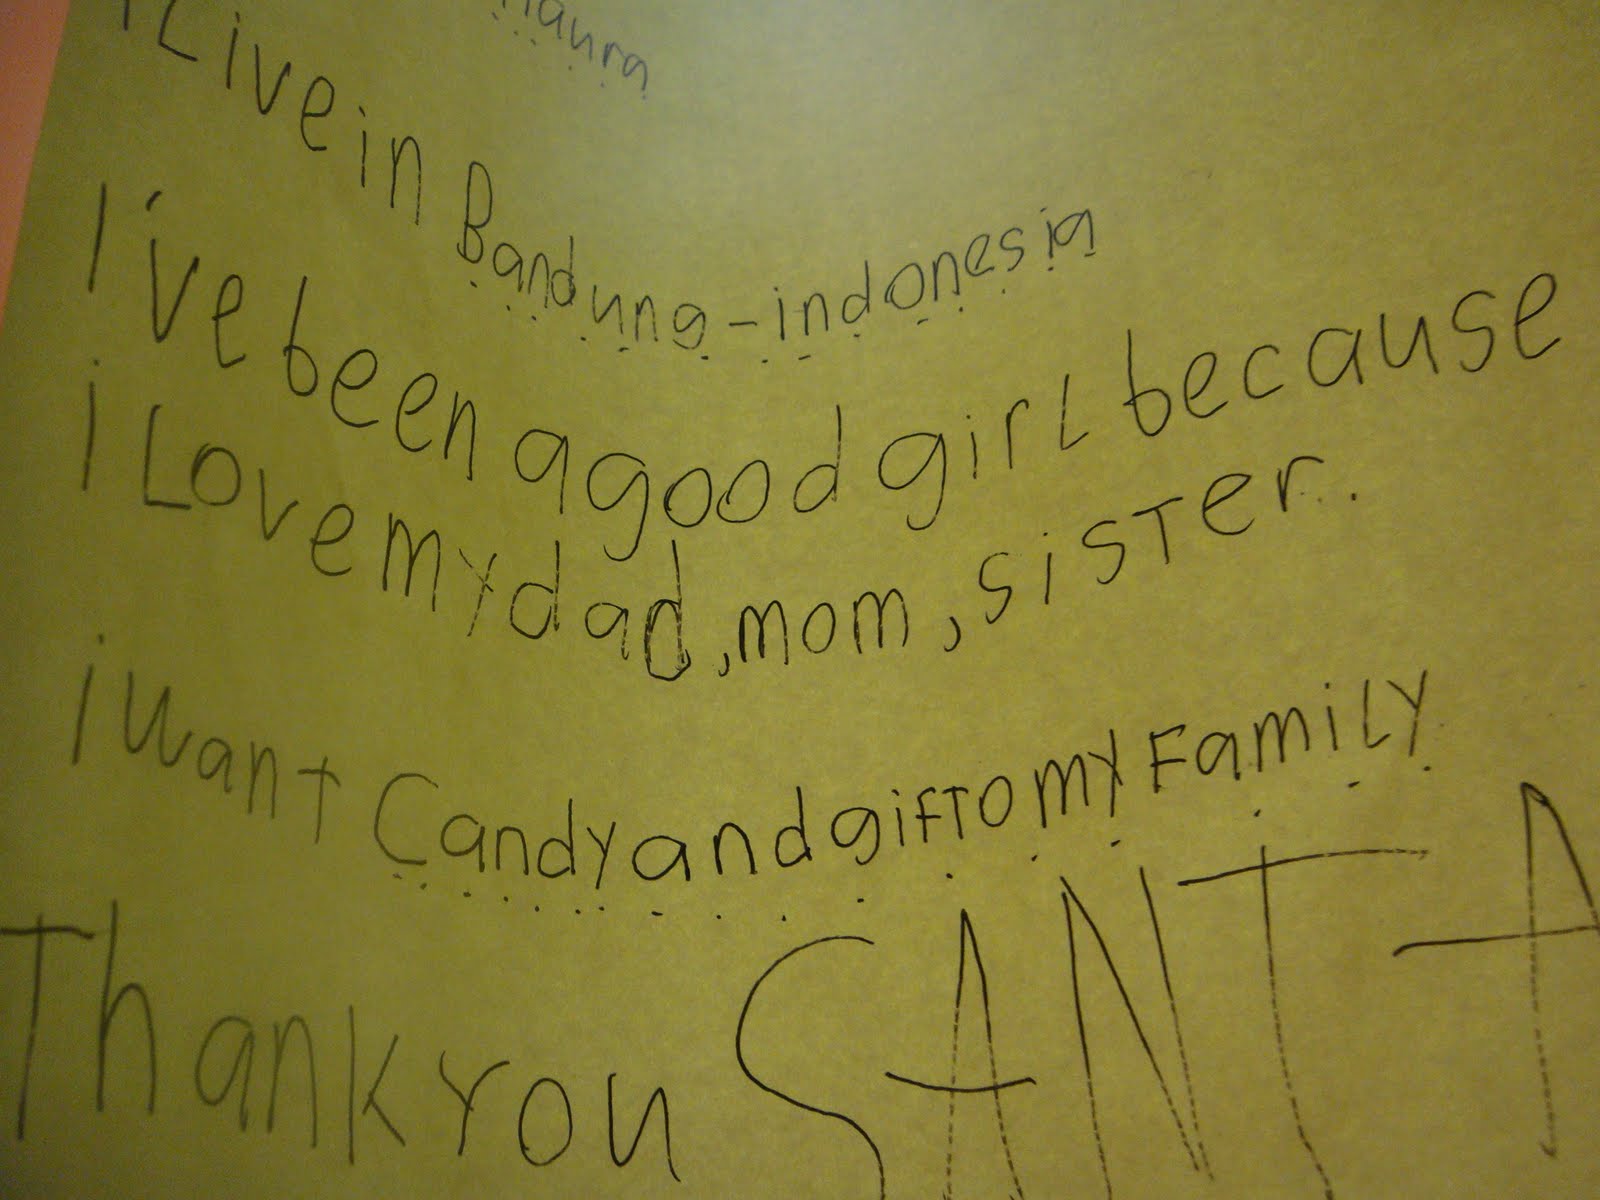 i Live in Bandung - indonesia
I've been a good girL because
i Love my dad, mom, sister.
i want Candy and gift to my FamiLy
Thank you SANTA